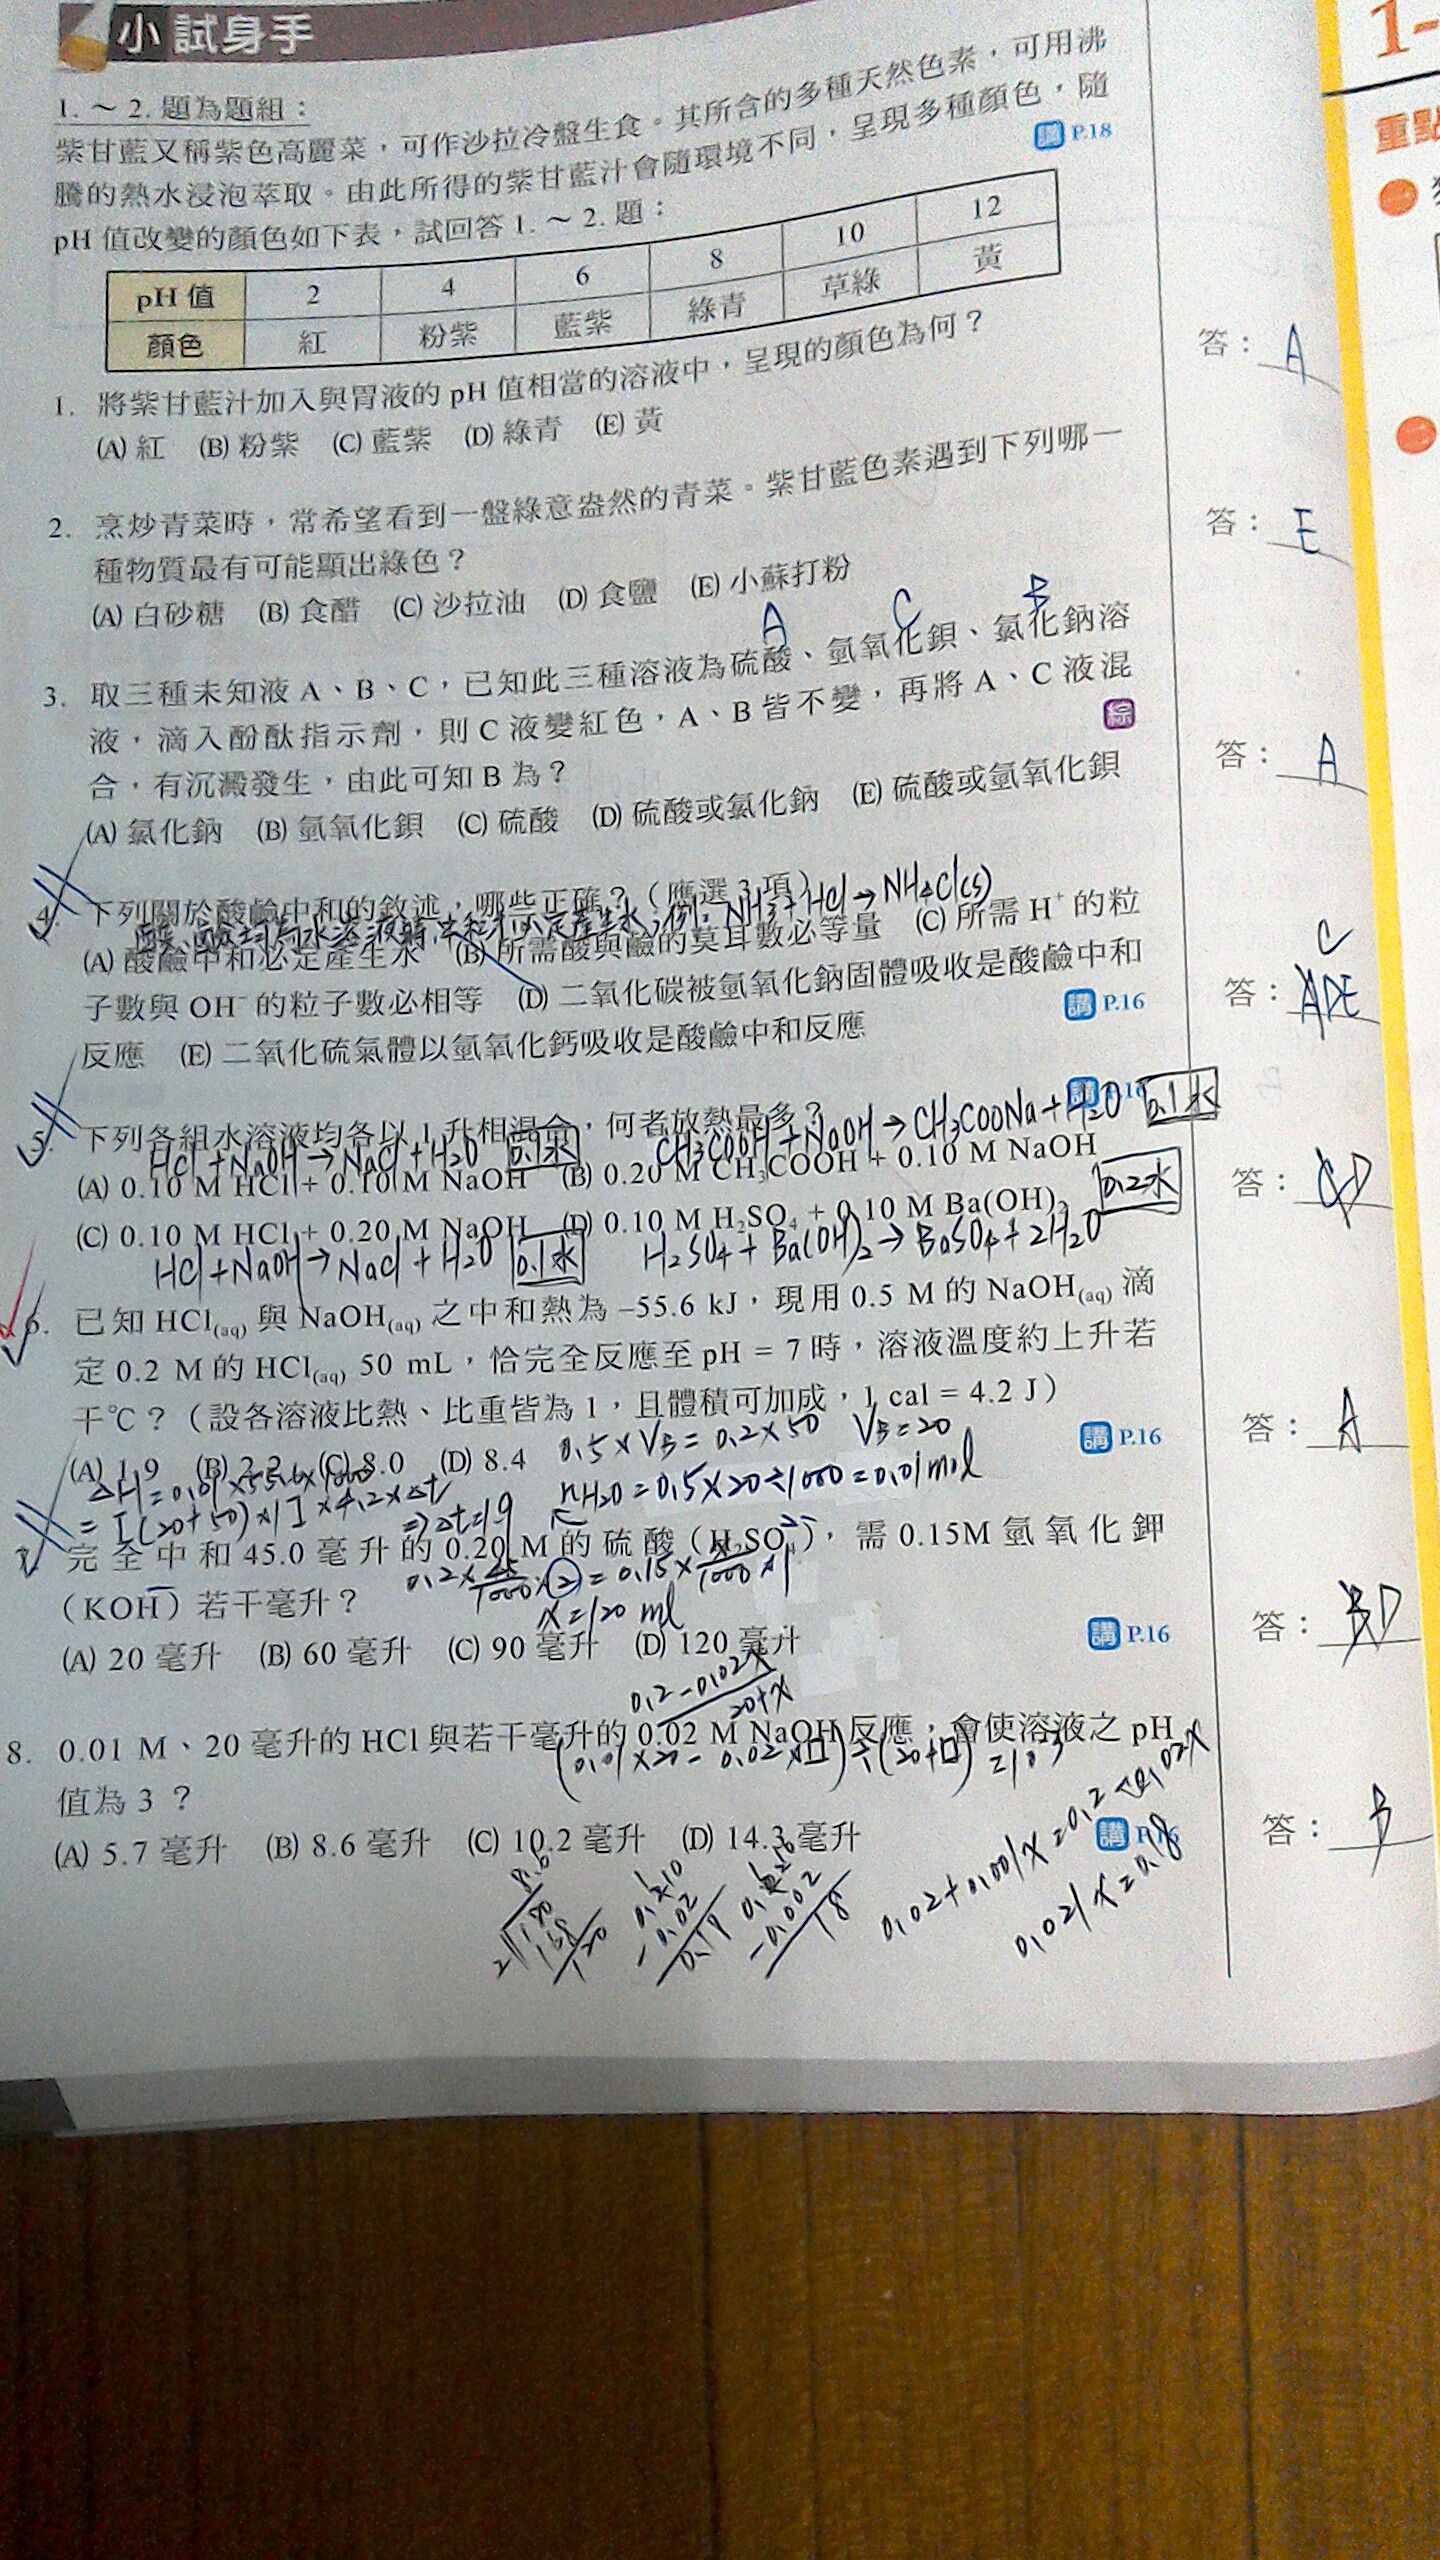 小試身手
1.～2.題為題組：
紫甘藍又稱紫色高麗菜，可作沙拉冷盤生食。其所含的多種天然色素，可用沸
騰的熱水浸泡萃取。由此所得的紫甘藍汁會隨環境不同，呈現多種顏色，隨
pH 值改變的顏色如下表，試回答 1.～2.題：
講 P.18
pH 值 2 4 6 8 10 12
顏色 紅 粉紫 藍紫 綠青 草綠 黃
1. 將紫甘藍汁加入與胃液的 pH 值相當的溶液中，呈現的顏色為何？
答：A
(A) 紅 (B) 粉紫 (C) 藍紫 (D) 綠青 (E) 黃
2. 烹炒青菜時，常希望看到一盤綠意盎然的青菜。紫甘藍色素遇到下列哪一
答：E
種物質最有可能顯出綠色？
(A) 白砂糖 (B) 食醋 (C) 沙拉油 (D) 食鹽 (E) 小蘇打粉
A C B
3. 取三種未知液 A、B、C，已知此三種溶液為硫酸、氫氧化鋇、氯化鈉溶
液，滴入酚酞指示劑，則 C 液變紅色，A、B 皆不變，再將 A、C 液混
綜
答：A
合，有沉澱發生，由此可知 B 為？
(A) 氯化鈉 (B) 氫氧化鋇 (C) 硫酸 (D) 硫酸或氯化鈉 (E) 硫酸或氫氧化鋇
4. 下列關於酸鹼中和的敘述，哪些正確？（應選 3 項）
酸、鹼均為水溶液時中和不一定產生水；例：NH3+HCl→NH4Cl(s)
(A) 酸鹼中和必定產生水 (B) 所需酸與鹼的莫耳數必等量 (C) 所需 H⁺ 的粒
子數與 OH⁻ 的粒子數必相等 (D) 二氧化碳被氫氧化鈉固體吸收是酸鹼中和
講 P.16
C
答：ADE
反應 (E) 二氧化硫氣體以氫氧化鈣吸收是酸鹼中和反應
5. 下列各組水溶液均各以 1 升相混合，何者放熱最多？
講
HCl+NaOH→NaCl+H2O 0.1水
CH3COOH+NaOH→CH3COONa+H2O 0.1水
(A) 0.10 M HCl + 0.10 M NaOH (B) 0.20 M CH₃COOH + 0.10 M NaOH
答：CD
(C) 0.10 M HCl + 0.20 M NaOH (D) 0.10 M H₂SO₄ + 0.10 M Ba(OH)₂
0.2水
HCl+NaOH→NaCl+H2O 0.1水
H2SO4+Ba(OH)2→BaSO4+2H2O
6. 已知 HCl(aq) 與 NaOH(aq) 之中和熱為 –55.6 kJ，現用 0.5 M 的 NaOH(aq) 滴
定 0.2 M 的 HCl(aq) 50 mL，恰完全反應至 pH = 7 時，溶液溫度約上升若
干℃？（設各溶液比熱、比重皆為 1，且體積可加成，1 cal = 4.2 J）
講 P.16
答：A
0.5×VB=0.2×50 VB=20
(A) 1.9 (B) 2.2 (C) 8.0 (D) 8.4
ΔH=0.01×55.6×1000
nH2O=0.5×20÷1000=0.01mol
=[(20+50)×1]×4.2×Δt
⇒Δt=1.9
7. 完全中和 45.0 毫升的 0.20 M 的硫酸（H₂SO₄），需 0.15M 氫氧化鉀
（KOH）若干毫升？
0.2×45/1000×2=0.15×x/1000×1
x=120 ml
講 P.16
答：BD
(A) 20 毫升 (B) 60 毫升 (C) 90 毫升 (D) 120 毫升
0.2-0.02x
20+x
8. 0.01 M、20 毫升的 HCl 與若干毫升的 0.02 M NaOH 反應，會使溶液之 pH
值為 3 ？
(0.01×20-0.02×□)÷(20+□)
講
答：B
(A) 5.7 毫升 (B) 8.6 毫升 (C) 10.2 毫升 (D) 14.3 毫升
0.02+0.001x=0.2-0.02x
0.021x=0.18
1-
重點